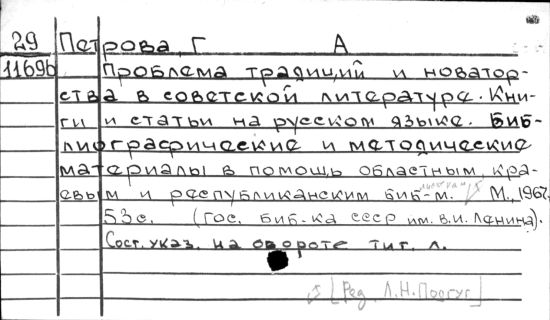 29 Петрова, Г А
11696 Проблема традиций и новатор-
ства в советской литературе. Кни-
ги и статьи на русском языке. Биб-
лиографические и методические
материалы в помощь областным, кра-
евым и республиканским биб-м. М., 1967.
53с. (Гос. биб-ка СССР им. В.И. Ленина).
Сост. указ. на обороте тит. л.
[Ред. Л.Н.